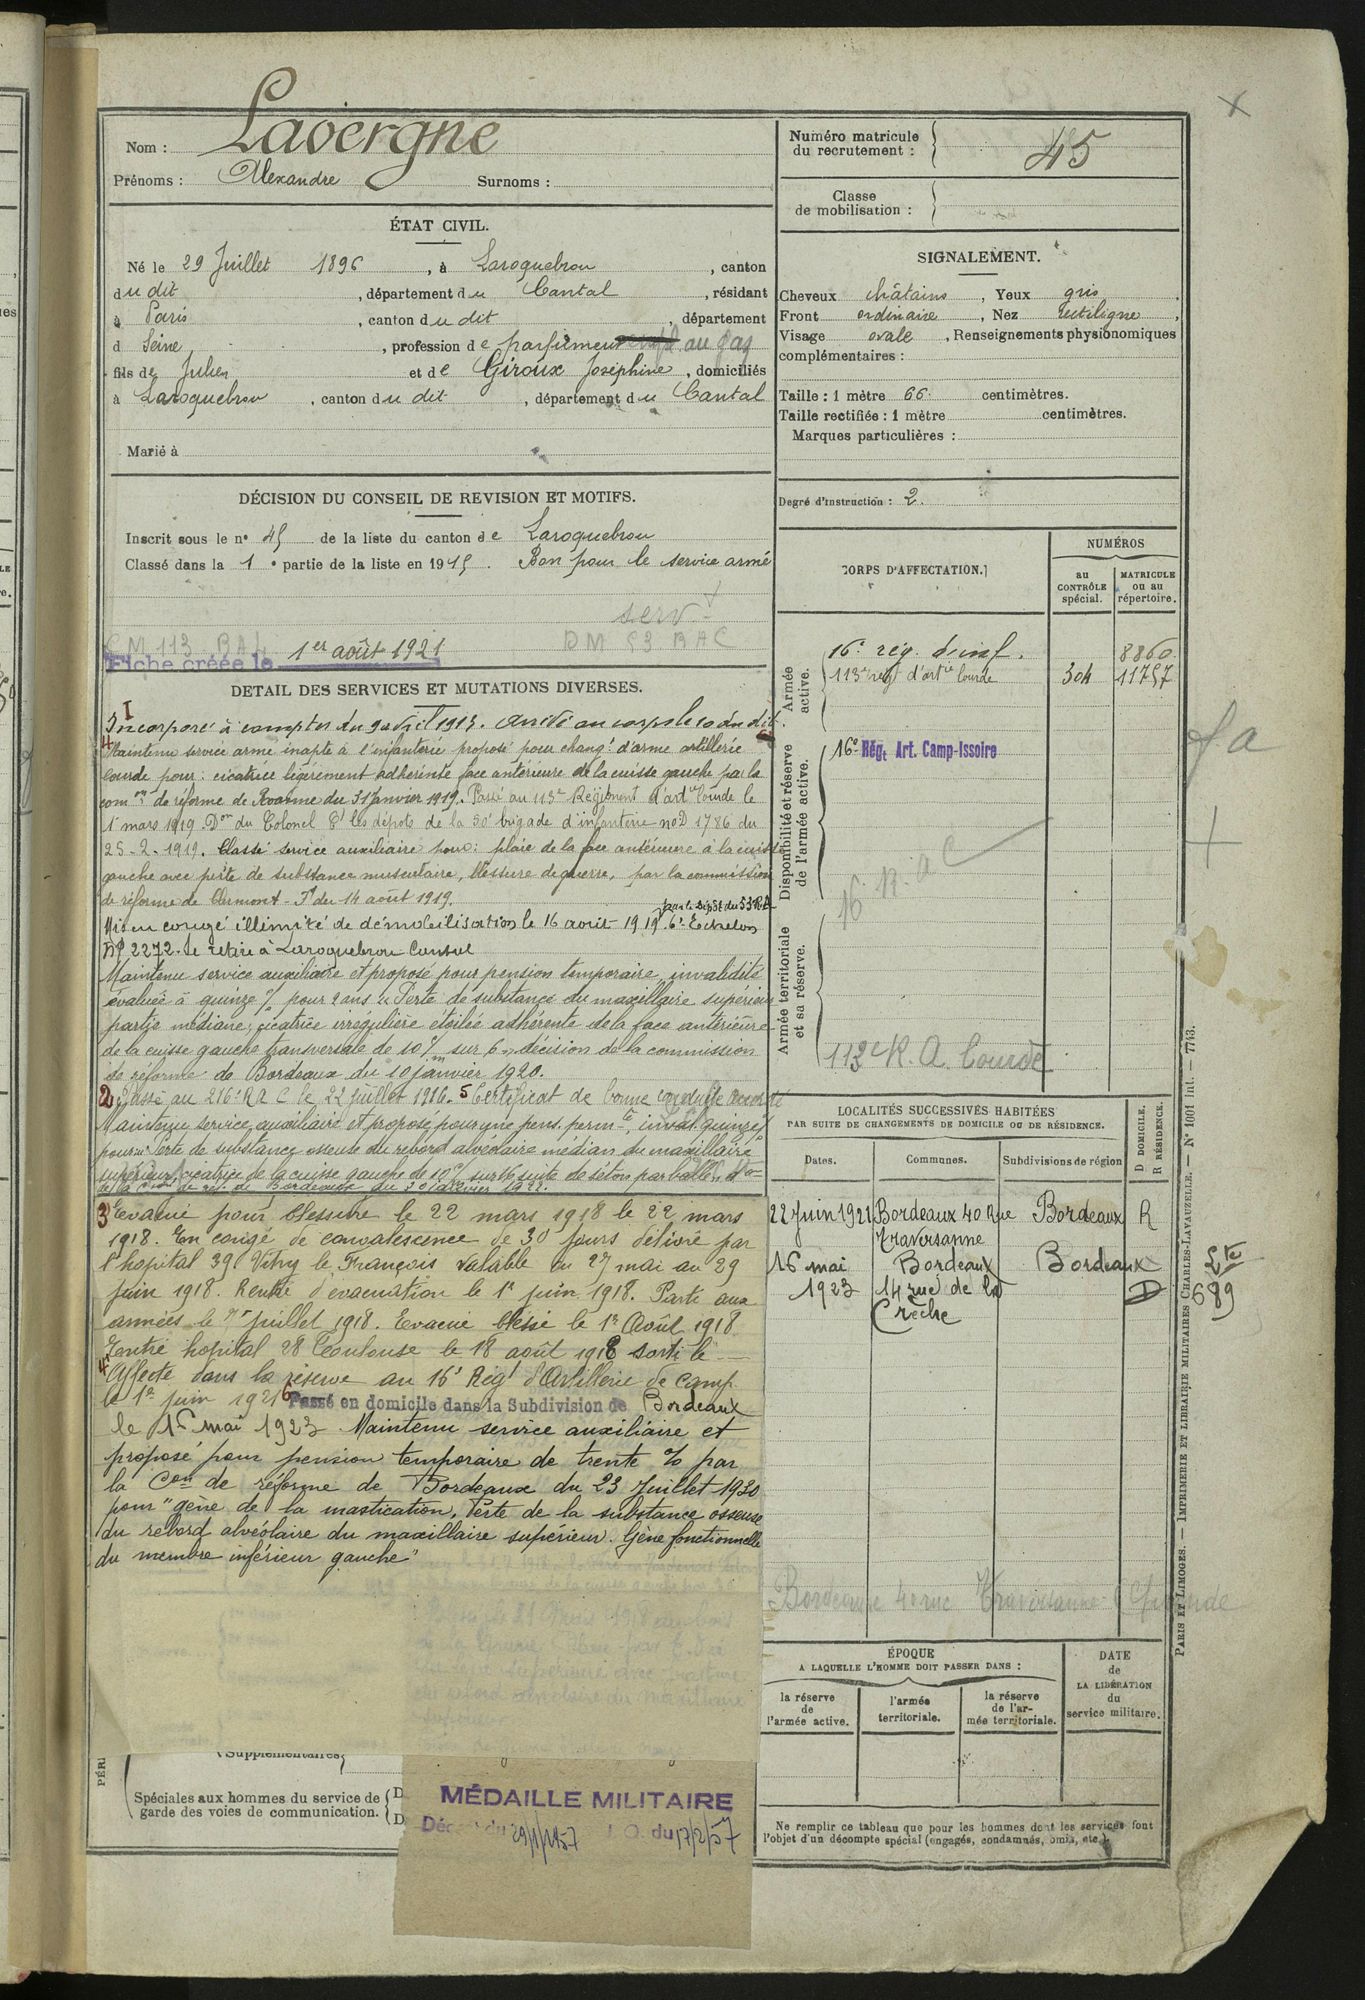 Nom : Lavergne
Prénoms : Alexandre Surnoms :
ÉTAT CIVIL.
Né le 29 Juillet 1896, à Laroquebrou, canton
du dit, département du Cantal, résidant
à Paris, canton du dit, département
d Seine, profession de parfumeur au gaz
fils de Julien et de Giroux Joséphine, domiciliés
à Laroquebrou, canton du dit, département du Cantal
Marié à
DÉCISION DU CONSEIL DE REVISION ET MOTIFS.
Inscrit sous le n° 45 de la liste du canton de Laroquebrou
Classé dans la 1e partie de la liste en 1915. Bon pour le service armé
serv
CM 113 BAL DM 53 BAC
Fiche créée le 1er août 1921
DETAIL DES SERVICES ET MUTATIONS DIVERSES.
I
Incorporé à compter du 9 avril 1915. Arrivé au corps le 10 du dit.
4 Maintenu service armé inapte à l'infanterie proposé pour changt d'arme artillerie
lourde pour : cicatrice légèrement adhérente face antérieure de la cuisse gauche par la
comon de réforme de Roanne du 31 Janvier 1919. Passé au 113e Régiment d'artie lourde le
1er mars 1919. Don du Colonel Ct les dépôts de la 50e brigade d'infanterie no D 1786 du
25-2-1919. Classé service auxiliaire pour : plaie de la face antérieure à la cuisse
gauche avec perte de substance musculaire, blessure de guerre, par la commission
de réforme de Clermont-Fd du 14 août 1919.
Mis en congé illimité de démobilisation le 16 août 1919 6e Echelon par le Dépôt du 53 RA
No 2272. Se retire à Laroquebrou Cantal
Maintenu service auxiliaire et proposé pour pension temporaire, invalidité
évaluée à quinze % pour 2 ans "Perte de substance du maxillaire supérieur
partie médiane, cicatrice irrégulière étoilée adhérente de la face antérieure
de la cuisse gauche transversale de 10 % sur 6" décision de la commission
de réforme de Bordeaux du 10 janvier 1920.
2 Passé au 216e RAC le 22 juillet 1916. 5 Certificat de bonne conduite accordé
Maintenu service auxiliaire et proposé pour une pens. permte, inval. quinze %
pour "Perte de substance osseuse du rebord alvéolaire médian du maxillaire
supérieur, cicatrice de la cuisse gauche de 10 % sur 6 suite de séton par balle" don
de la Con de réf. de Bordeaux du 30 janvier 1922.
3 Evacué pour blessure le 22 mars 1918 le 22 mars
1918. En congé de convalescence de 30 jours délivré par
l'hopital 39 Vitry le François valable du 27 mai au 29
juin 1918. Rentré d'évacuation le 1er juin 1918. Parti aux
armées le 7 juillet 1918. Evacué blessé le 1er Août 1918
Entré hopital 28 Toulouse le 18 août 1918 sorti le —
4 Affecté dans la réserve au 16e Régt d'Artillerie de Camp.
le 1er juin 1921 6 Passé en domicile dans la Subdivision de Bordeaux
le 16 mai 1923. Maintenu service auxiliaire et
proposé pour pension temporaire de trente % par
la Con de réforme de Bordeaux du 23 Juillet 1930
pour "gêne de la mastication. Perte de la substance osseuse
du rebord alvéolaire du maxillaire supérieur. Gêne fonctionnelle
du membre inférieur gauche"
PÉRI
Supplémentaires
Spéciales aux hommes du service de
garde des voies de communication.
MÉDAILLE MILITAIRE
Décret du 29/1/1957 J.O. du 17/2/57
Numéro matricule
du recrutement : 45
Classe
de mobilisation :
SIGNALEMENT.
Cheveux châtains, Yeux gris
Front ordinaire, Nez rectiligne,
Visage ovale, Renseignements physionomiques
complémentaires :
Taille : 1 mètre 66 centimètres.
Taille rectifiée : 1 mètre centimètres.
Marques particulières :
Degré d'instruction : 2.
CORPS D'AFFECTATION.
NUMÉROS
au CONTRÔLE spécial.
MATRICULE ou au répertoire.
Armée active.
16e rég. d'inf. 8860
113e regt d'artie lourde 304 11757
Disponibilité et réserve de l'armée active.
16e Régt Art. Camp-Issoire
16. R. a C
Armée territoriale et sa réserve.
113e R. A. Lourde
LOCALITÉS SUCCESSIVES HABITÉES
PAR SUITE DE CHANGEMENTS DE DOMICILE OU DE RÉSIDENCE.
D DOMICILE.
R RÉSIDENCE.
Dates. Communes. Subdivisions de région
22 Juin 1921 Bordeaux 40 Rue Traversanne Bordeaux R
16 mai 1923 Bordeaux 14 rue de la Crèche Bordeaux D
689
Bordeaux 40 rue Traversanne Gironde
ÉPOQUE
A LAQUELLE L'HOMME DOIT PASSER DANS :
la réserve de l'armée active.
l'armée territoriale.
la réserve de l'armée territoriale.
DATE de LA LIBÉRATION du service militaire.
Ne remplir ce tableau que pour les hommes dont les services font
l'objet d'un décompte spécial (engagés, condamnés, omis, etc.).
PARIS ET LIMOGES. — IMPRIMERIE ET LIBRAIRIE MILITAIRES CHARLES-LAVAUZELLE. — N° 1001 int. — 7743.